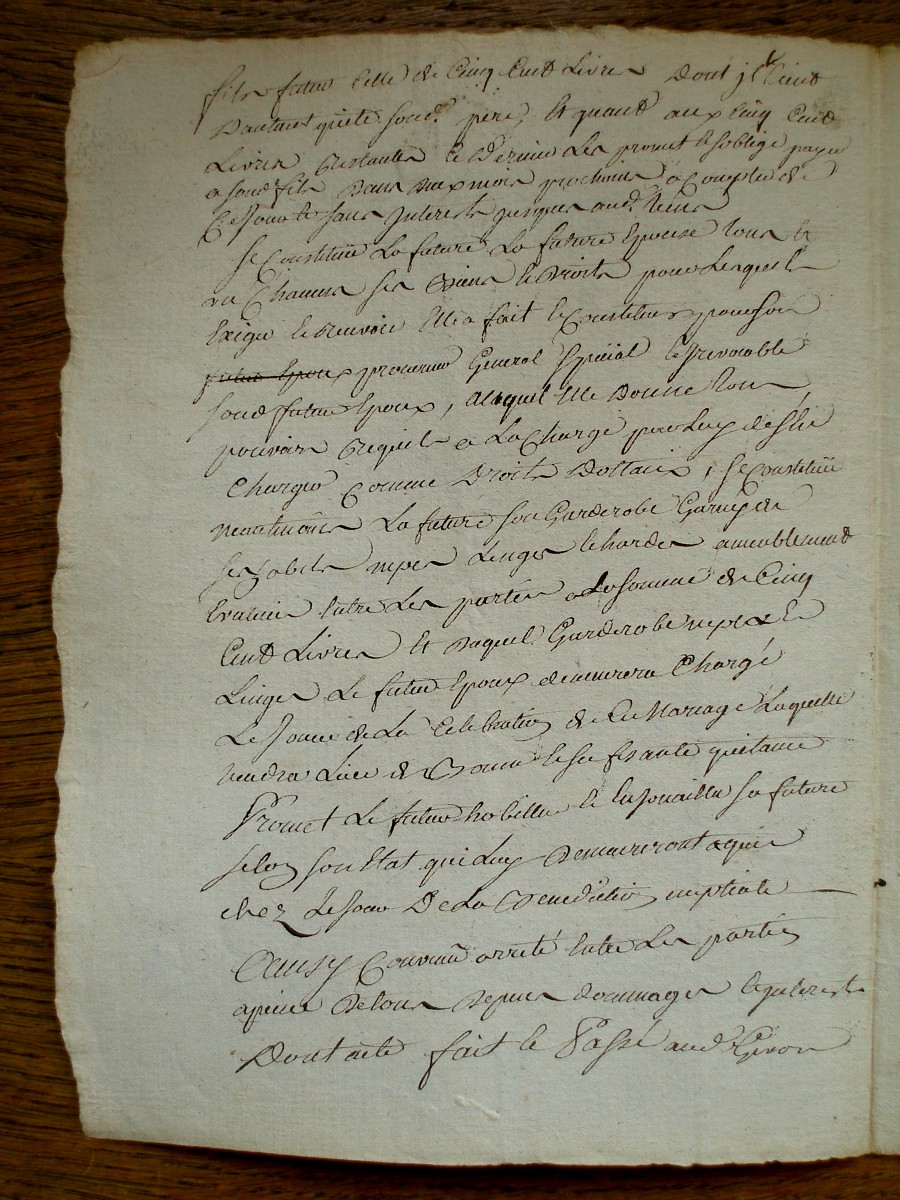 fils futur celle de Cinq Cent Livres Dont jl tient
Dautant quitte soud. pere, Et quant aux Cinq Cent
Livres Restantes ce Dernier Les promet Et soblige payer
a soud. fils Dans six mois prochains a Compter de
Ce Jour Et sans Interests jusques aud. tems
Se Constitue La future La future Epouse tous Et
un Chacuns ses Biens Et Droits pour Lesquels
Exiger Et Recevoir Elle a fait Et Constitué pour son
futur Epoux procureur General Special Et Irrevocable
soud. futur Epoux, auquel Elle Donne tous
pouvoirs Requis a La Charge par Luy des En
Charger Comme Droits Dotaux, se Constitue
neantmoins La future son Garderobe Garny de
ses habits nipes Linges Et hardes ameublement
Evalués Entre Les parties a La somme de Cinq
Cent Livres Et Duquel Garderobe nipes Et
Linges Le futur Epoux demeurera Chargé
Le Jour de La Celebration de Ce Mariage Laquelle
tiendra Lieu de Bonne Et suffisante quittance
Promet Le futur habiller Et Enjouailler sa future
selon son Etat qui Luy Demeureront aquis
chez Le Jour De La Benediction nuptiale
Ainsy Convenu arreté Entre Les parties
a peine De tous Depens dommages Et Interests
Dont acte fait Et Passé aud. Givon